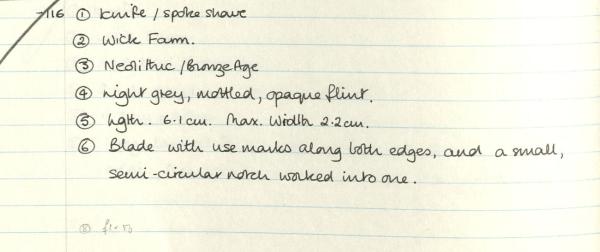 116 ① Knife / spoke shave
② Wick Farm.
③ Neolithic / Bronze Age
④ Light grey, mottled, opaque flint.
⑤ Lgth. 6.1cm. Max. Width 2.2cm.
⑥ Blade with use marks along both edges, and a small,
semi-circular notch worked into one.
⑧